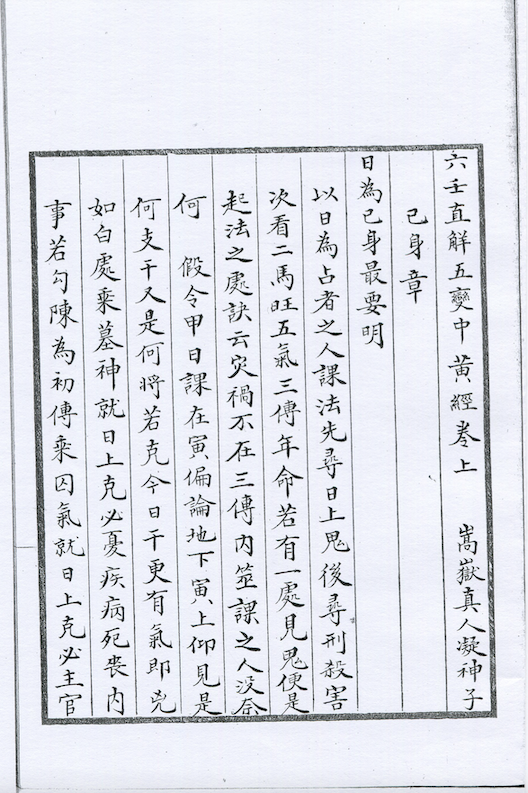 六壬直解五變中黃經卷上　嵩嶽真人凝神子
己身章
日為己身最要明
以日為占者之人課法先尋日上鬼後尋刑殺害
次看二馬旺五氣三傳年命若有一處見鬼便是
起法之處訣云灾禍不在三傳內筮課之人沒奈
何　假令甲日課在寅偏論地下寅上仰見是
何支干又是何將若克今日干更有氣即兇
如白處乘墓神就日上克必憂疾病死喪內
事若勾陳為初傳乘囚氣就日上克必主官